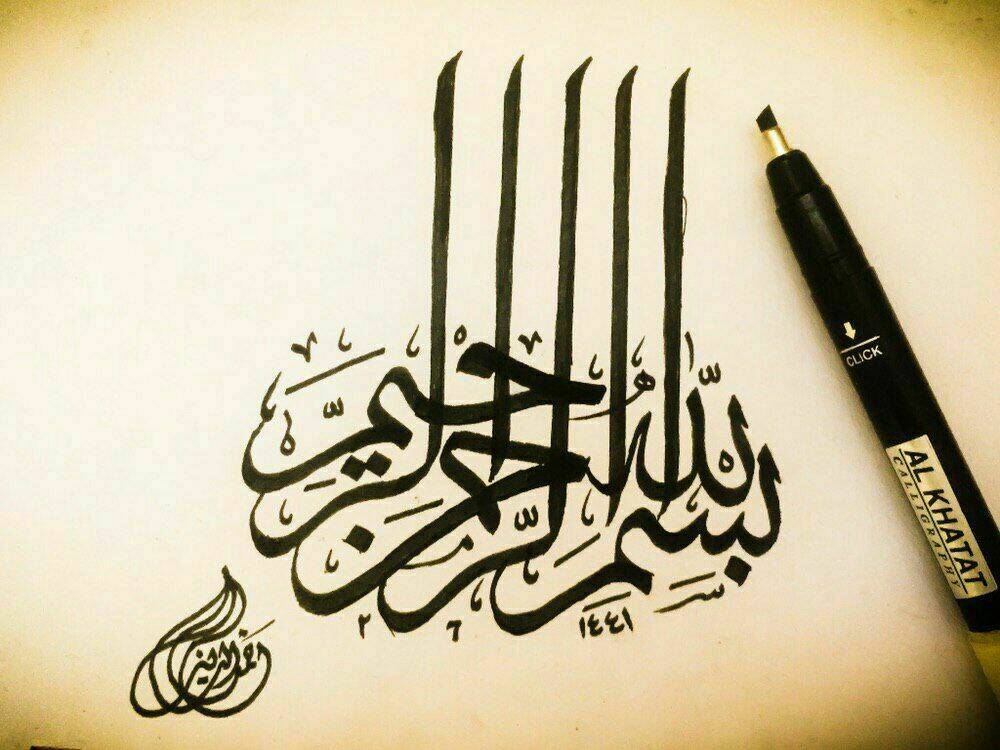 بسم الله الرحمن الرحيم
١٤٤١
CLICK
AL KHATAT
CALLIGRAPHY